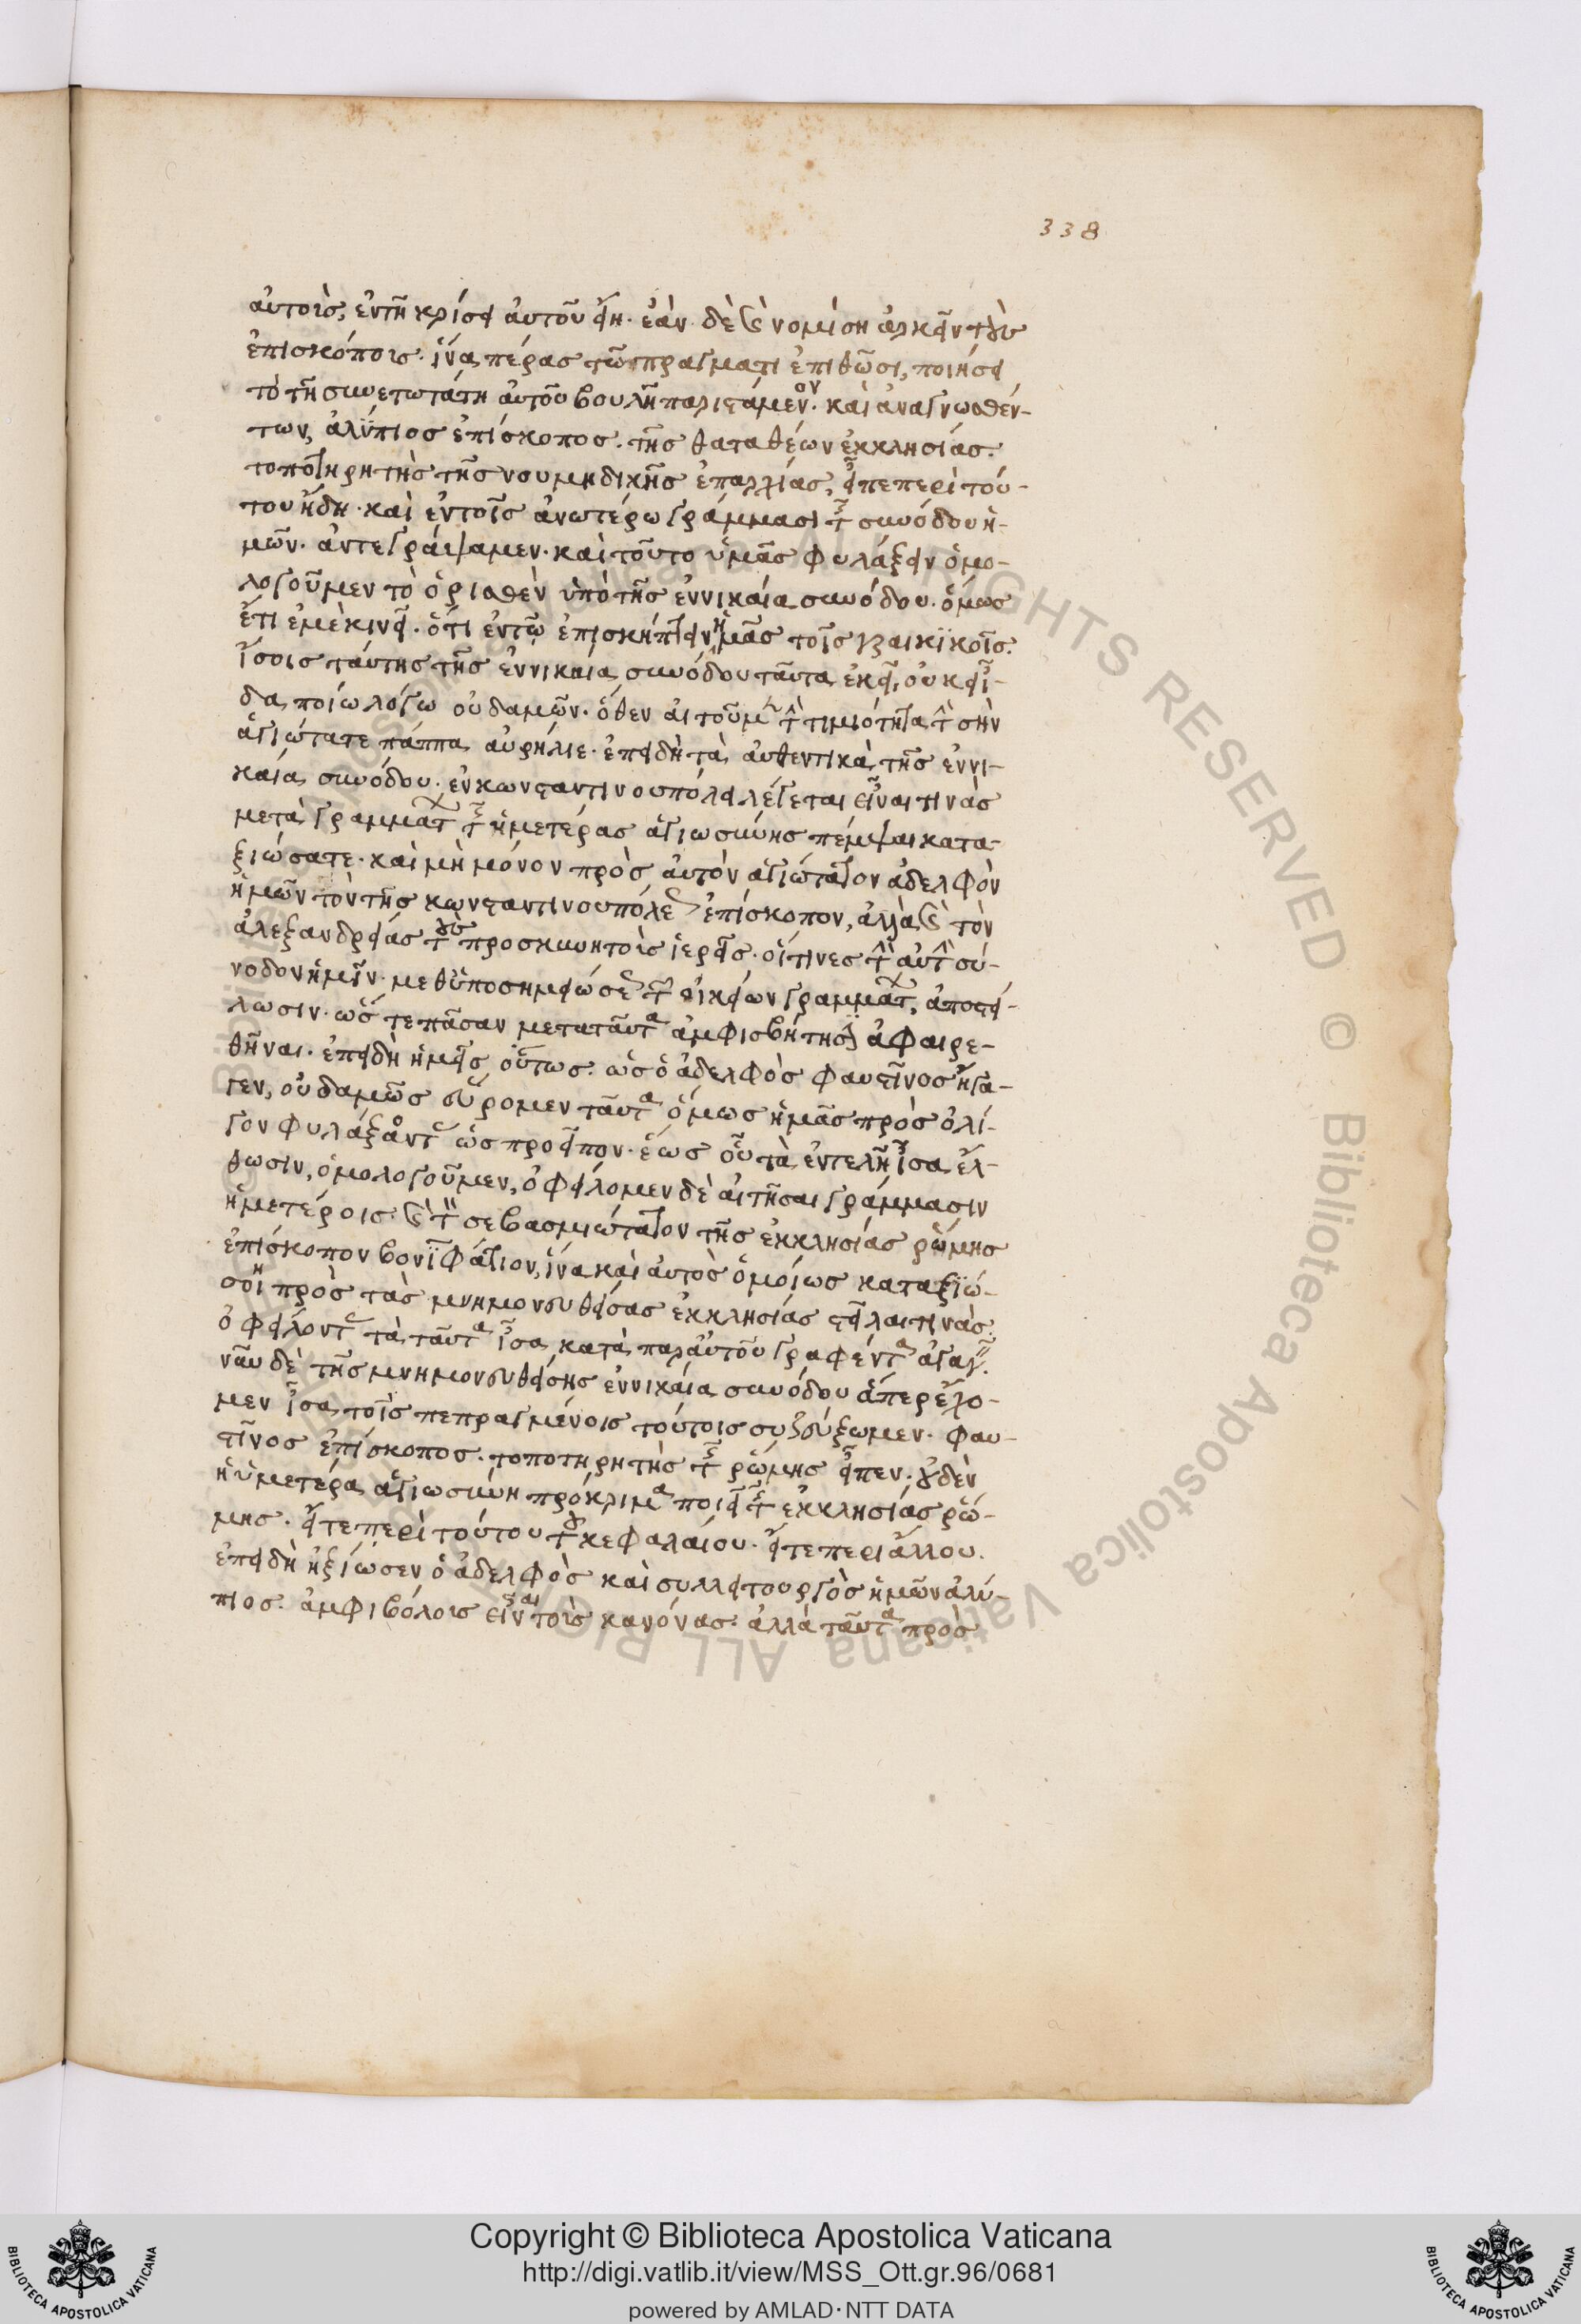 338
αὐτοὶς, ἐν τῆ κρίσει αὐτοῦ εἴη. ἐὰν δὲ καὶ νομίση ἀρκεῖν τοὺς
ἐπισκόπους. ἵνα πέρας τῶ πραγματι ἐπιθῶσι, ποιήσει
τὸ τῆ συνετωτάτη αὐτοῦ βουλῆ παριστάμενον. καὶ ἀναγνωσθέν-
των, ἀλύπιος ἐπίσκοπος. τῆς θαταθέων ἐκκλησίας.
τοποτηρητὴς τῆς νουμηδικῆς ἐπαρχίας, εἶπε περὶ τού-
του ἤδη. καὶ ἐν τοῖς ἀνωτέρω γράμμασι τῆς συνόδου ἡ-
μῶν. ἀντεγράψαμεν. καὶ τοῦτο ὑμᾶς φυλάξειν ὁμο-
λογοῦμεν τὸ ὁρισθὲν ὑπὸ τῆς ἐν νικαία συνόδου. ὅμως
ἔτι ἐμὲ κινεῖ. ὅτι ἐν τῶ ἐπισκήπτειν ἡμᾶς τοῖς γραικϊκοῖς.
ἴσοις ταύτης τῆς ἐν νικαια συνόδου ταῦτα ἐκεῖ, οὐκ οἶ-
δα ποίω λόγω οὐδαμῶν. ὅθεν αἰτοῦμεν τὴν τιμιότητα τὴν σὴν
ἁγιώτατε πάππα αὐρήλιε. ἐπειδὴ τὰ αὐθεντικὰ τῆς ἐν νι-
καία συνόδου. ἐν κωνσταντινουπόλει λέγεται εἶναι τινὰς
μετὰ γραμμάτων τῆς ἡμετέρας ἁγιωσύνης πέμψαι κατα-
ξιώσατε. καὶ μὴ μόνον πρὸς αὐτὸν ἁγιώτατον ἀδελφὸν
ἡμῶν τὸν τῆς κωνσταντινουπόλεως ἐπίσκοπον, ἀλλὰ καὶ τὸν
ἀλεξανδρείας τοὺς προσκυνητοὺς ἱερεῖς. οἵτινες τὴν αὐτὴν σύ-
νοδον ἡμῖν. μεθ ὑποσημειώσεως τῶν οἰκείων γραμμάτων, ἀποστεί-
λωσιν. ὥς τε πᾶσαν μετα ταῦτα ἀμφισβήτησιν ἀφαιρε-
θῆναι. ἐπειδὴ ἡμεῖς οὕτως. ὡς ὁ ἀδελφὸς φαυστῖνος ἤγα-
γεν, οὐδαμῶς εὕρομεν ταῦτα ὅμως ἡμᾶς πρὸς ὀλί-
γον φυλάξαντες ὡς προεῖπον. ἕως οὗ τὰ ἐντελῆ ἴσα ἔλ-
θωσιν, ὁμολογοῦμεν, ὀφείλομεν δὲ αἰτῆσαι γράμμασιν
ἡμετέροις καὶ τὸν σεβασμιώτατον τῆς ἐκκλησίας ῥώμης
ἐπίσκοπον βονϊφάτιον, ἵνα καὶ αὐτὸς ὁμοίως καταξϊώ-
ση πρὸς τὰς μνημονευθείσας ἐκκλησίας στεῖλαι τινὰς.
ὀφείλοντας τὰ ταῦτα ἴσα κατὰ παρ αὐτοῦ γραφέντα ἀγαγεῖν.
νῦν δὲ τῆς μνημονευθείσης ἐν νικαία συνόδου ἅπερ εἴχο-
μεν ἴσα τοῖς πεπραγμένοις τούτοις συζεύξωμεν. φαυ-
στῖνος ἐπίσκοπος. τοποτηρητὴς τῆς ῥώμης εἶπεν. οὐδὲν
ἡ ὑμετέρα ἁγιωσύνη πρόκριμα ποιεῖ τῆς ἐκκλησίας ῥώ-
μης. εἴτε περὶ τούτου τοῦ κεφαλαίου. εἴτε περι ἄλλου.
ἐπειδὴ ἠξίωσεν ὁ ἀδελφὸς καὶ συλλειτουργὸς ἡμῶν ἀλύ-
πιος. ἀμφιβόλους εἶναι τοὺς κανόνας. ἀλλὰ ταῦτα πρὸς
Copyright © Biblioteca Apostolica Vaticana
http://digi.vatlib.it/view/MSS_Ott.gr.96/0681
powered by AMLAD·NTT DATA
BIBLIOTECA APOSTOLICA VATICANA
BIBLIOTECA APOSTOLICA VATICANA
© Biblioteca Apostolica Vaticana ALL RIGHTS RESERVED